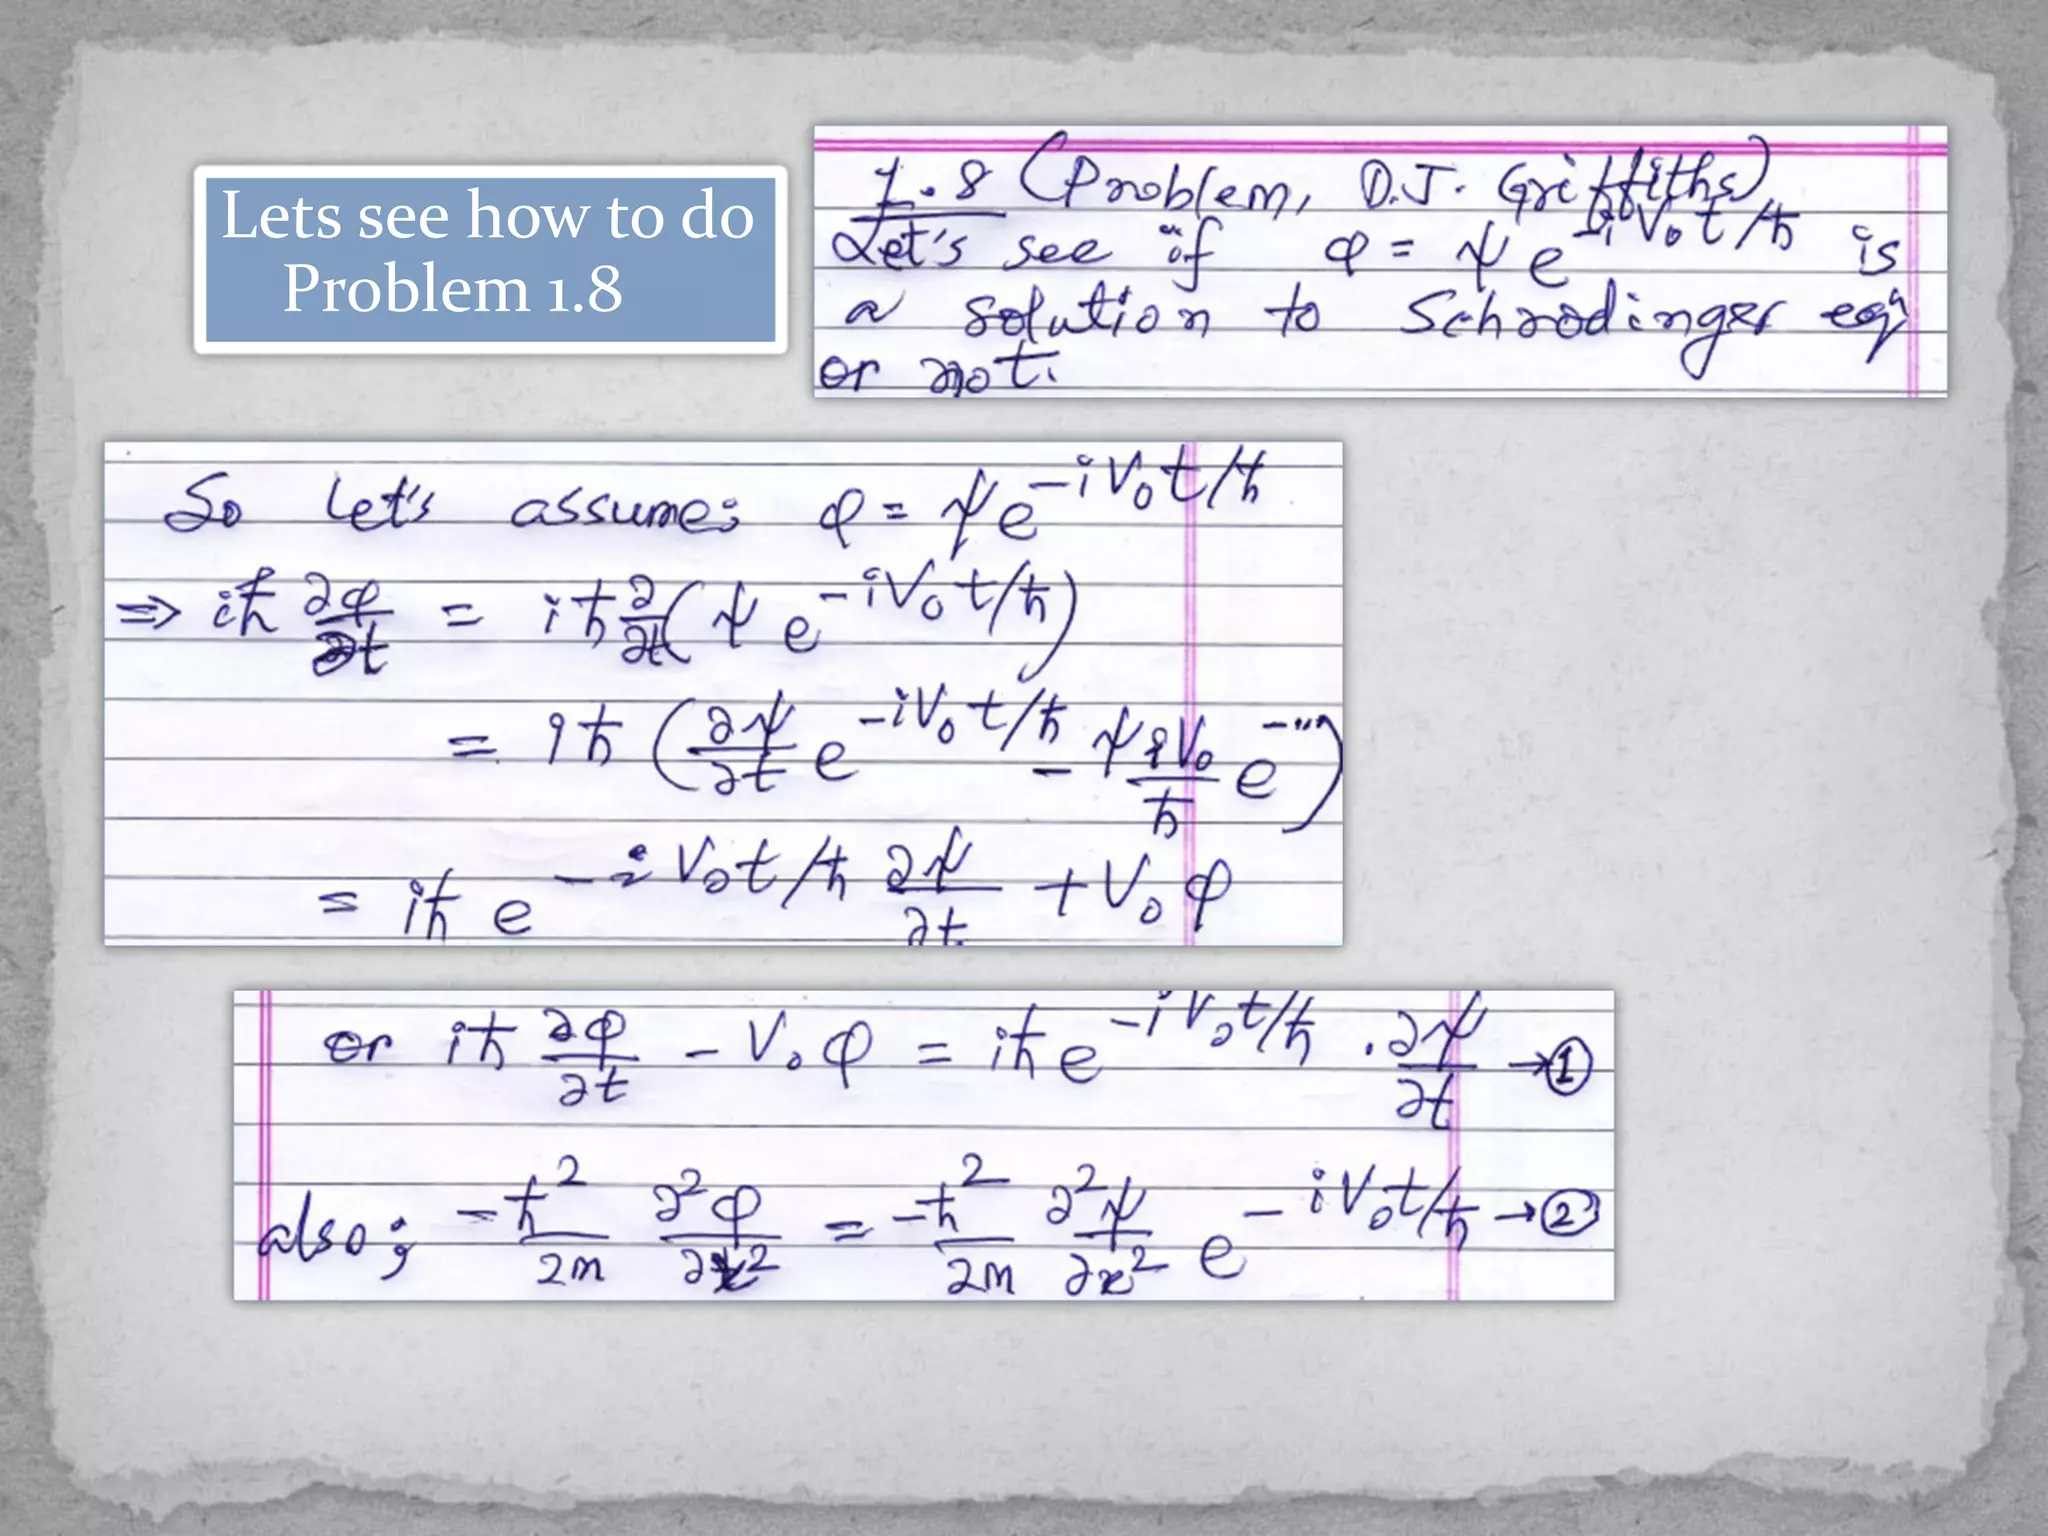 Lets see how to do
Problem 1.8
1.8 (Problem, D.J. Griffiths)
Let's see if φ = ψ e^{-iV₀t/ħ} is
a solution to Schrodinger eqn
or not.
So Let's assume; φ = ψe^{-iV₀t/ħ}
⇒ iħ ∂φ/∂t = iħ ∂/∂t (ψ e^{-iV₀t/ħ})
= iħ (∂ψ/∂t e^{-iV₀t/ħ} - ψ iV₀/ħ e^{-""})
= iħ e^{-iV₀t/ħ} ∂ψ/∂t + V₀φ
or iħ ∂φ/∂t - V₀φ = iħe^{-iV₀t/ħ} . ∂ψ/∂t → ①
also; -ħ²/2m ∂²φ/∂x² = -ħ²/2m ∂²ψ/∂x² e^{-iV₀t/ħ} → ②